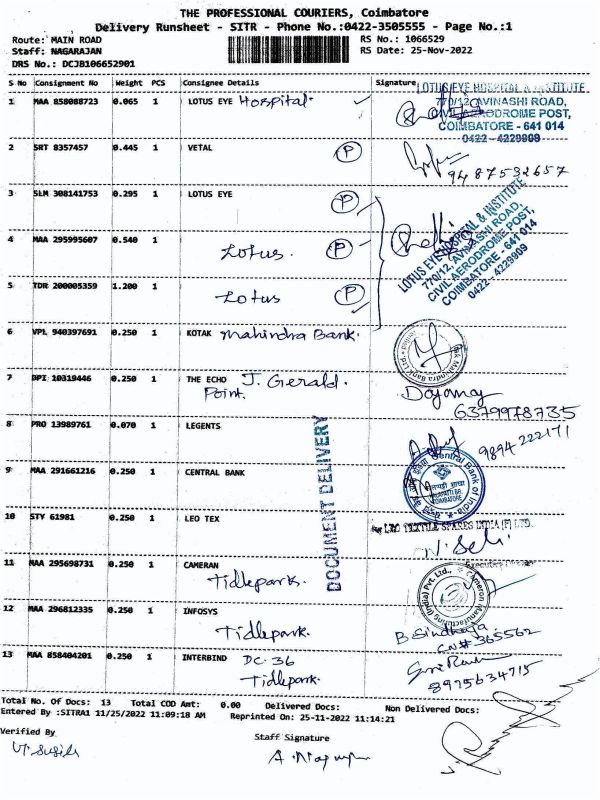 THE PROFESSIONAL COURIERS, Coimbatore
Delivery Runsheet - SITR - Phone No.:0422-3505555 - Page No.:1
Route: MAIN ROAD
RS No.: 1066529
Staff: NAGARAJAN
RS Date: 25-Nov-2022
DRS No.: DCJB106652901
S No Consignment No Weight PCS Consignee Details Signature
LOTUS EYE HOSPITAL & INSTITUTE
770/12, AVINASHI ROAD,
CIVIL AERODROME POST,
COIMBATORE - 641 014
0422 - 4229909
1 MAA 858088723 0.065 1 LOTUS EYE Hospital.
2 SRT 8357457 0.445 1 VETAL P
9487532657
3 SLM 308141753 0.295 1 LOTUS EYE P
LOTUS EYE HOSPITAL & INSTITUTE
770/12, AVINASHI ROAD,
CIVIL AERODROME POST,
COIMBATORE - 641 014
0422- 4229909
4 MAA 295995607 0.540 1 Lotus. P
5 TDR 200005359 1.200 1 Lotus P
6 VPL 940397691 0.250 1 KOTAK Mahindra Bank.
7 DPI 10319446 0.250 1 THE ECHO J. Gerald.
Point.
6379978735
8 PRO 13989761 0.070 1 LEGENTS
9894222171
DOCUMENT DELIVERY
9 MAA 291661216 0.250 1 CENTRAL BANK
Central Bank of India
COIMBATORE
10 STY 61981 0.250 1 LEO TEX
LEO TEXTILE SPARES INDIA (P) LTD.
11 MAA 295698731 0.250 1 CAMERAN
Tidlepark.
Cameron Manufacturing (India) Pvt. Ltd.,
12 MAA 296812335 0.250 1 INFOSYS
Tidlepark.
B Sindhuja
CN# 365562
13 MAA 858404201 0.250 1 INTERBIND DC-36
Tidlepark.
8975634715
Total No. Of Docs: 13 Total COD Amt: 0.00 Delivered Docs: Non Delivered Docs:
Entered By :SITRA1 11/25/2022 11:09:18 AM Reprinted On: 25-11-2022 11:14:21
Verified By
Staff Signature